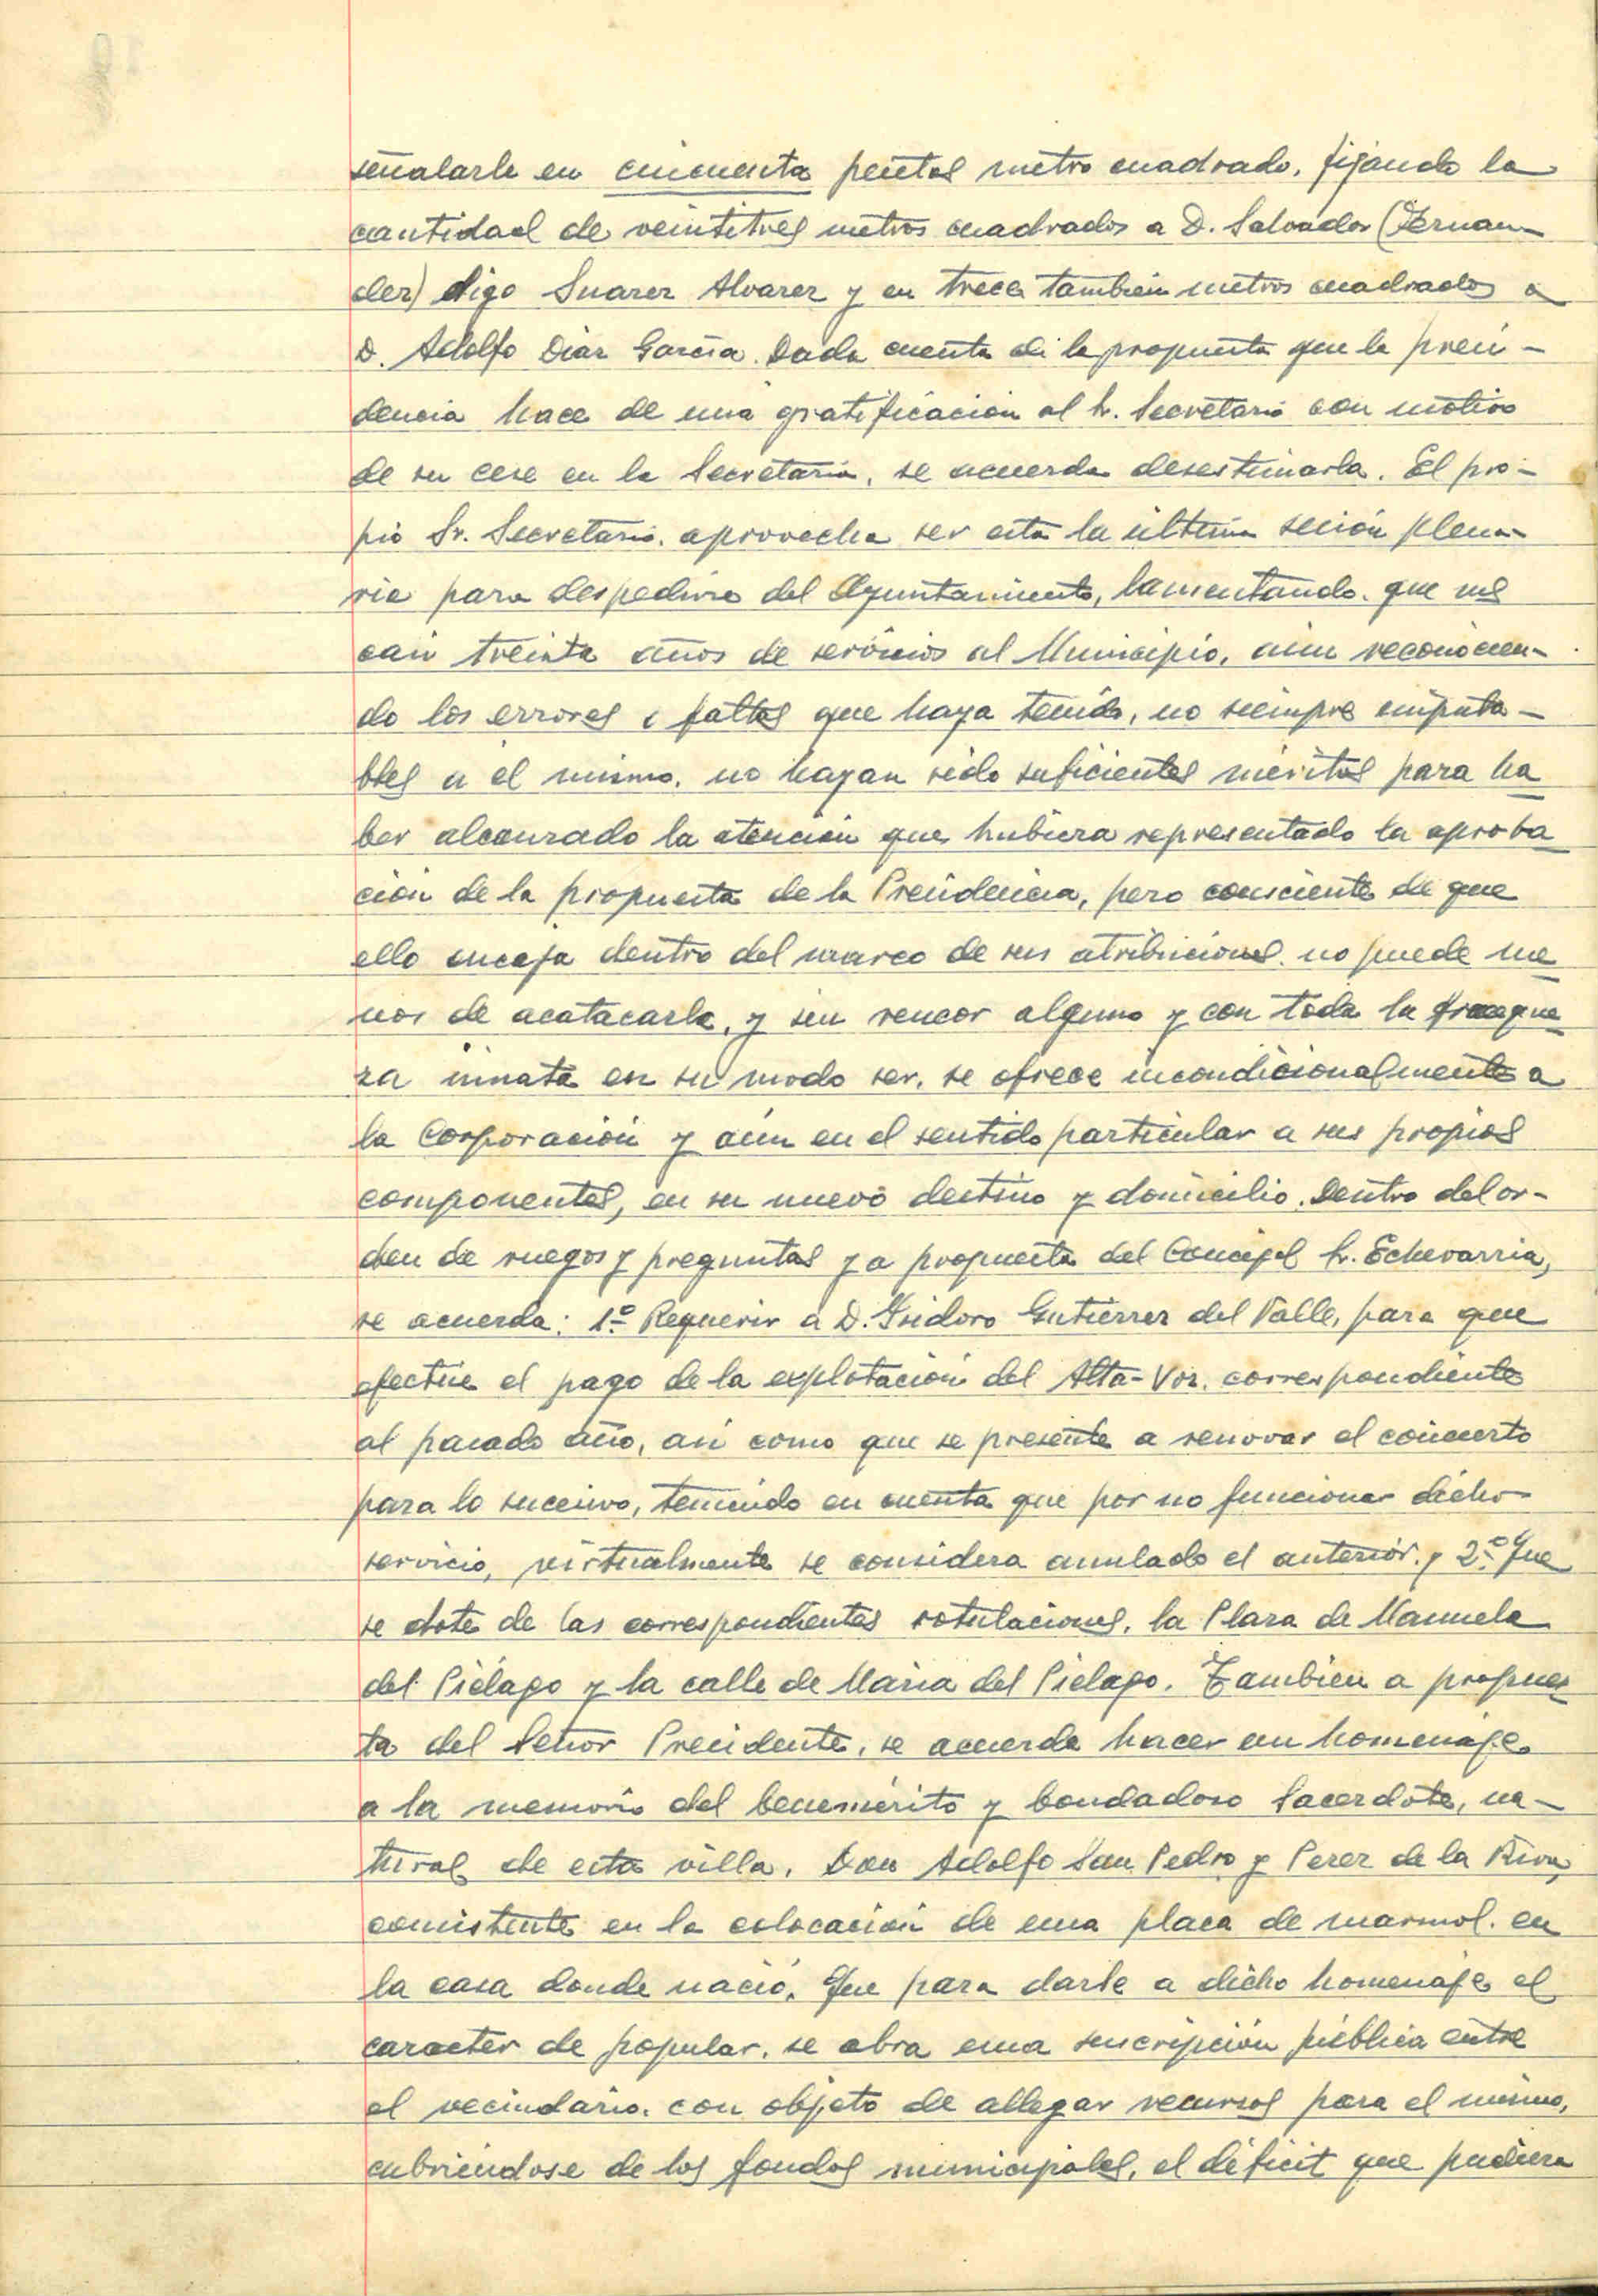 señalarle en cincuenta pesetas metro cuadrado, fijando la
cantidad de veintitres metros cuadrados a D. Salvador (Fernan-
dez) digo Suarez Alvarez y en trece tambien metros cuadrados a
D. Adolfo Diaz García. Dada cuenta de la propuesta que la presi-
dencia hace de una gratificación al Sr. Secretario con motivo
de su cese en la Secretaria, se acuerda desestimarla. El pro-
pio Sr. Secretario, aprovecha ser esta la última sesión plena-
ria para despedirse del Ayuntamiento, lamentando, que sus
casi treinta años de servicios al Municipio, aún reconocien-
do los errores o faltas que haya tenido, no siempre imputa-
bles a él mismo, no hayan sido suficientes méritos para ha
ber alcanzado la atención que hubiera representado la aproba
ción de la propuesta de la Presidencia, pero consciente de que
ello encaja dentro del marco de sus atribuciones, no puede me
nos de acatacarla, y sin rencor alguno y con toda la franque
za innata en su modo ser, se ofrece incondicionalmente a
la Corporación y aún en el sentido particular a sus propios
componentes, en su nuevo destino y domicilio. Dentro del or-
den de ruegos y preguntas y a propuesta del Concejal Sr. Echevarria,
se acuerda: 1º Requerir a D. Isidoro Gutierrez del Valle, para que
efectúe el pago de la explotación del Alta-Voz, correspondiente
al pasado año, asi como que se presente a renovar el concierto
para lo sucesivo, teniendo en cuenta que por no funcionar dicho
servicio, virtualmente se considera anulado el anterior, y 2º Que
se dote de las correspondientes rotulaciones, la Plaza de Manuela
del Piélago y la calle de Maria del Piélago. Tambien a propues
ta del Señor Presidente, se acuerda hacer un homenaje
a la memoria del benemérito y bondadoso Sacerdote, na-
tural de esta villa, Don Adolfo San Pedro y Perez de la Riva,
consistente en la colocación de una placa de marmol, en
la casa donde nació. Que para darle a dicho homenaje el
caracter de popular, se abra una suscripción pública entre
el vecindario, con objeto de allegar recursos para el mismo,
cubriéndose de los fondos municipales, el déficit que pudiera